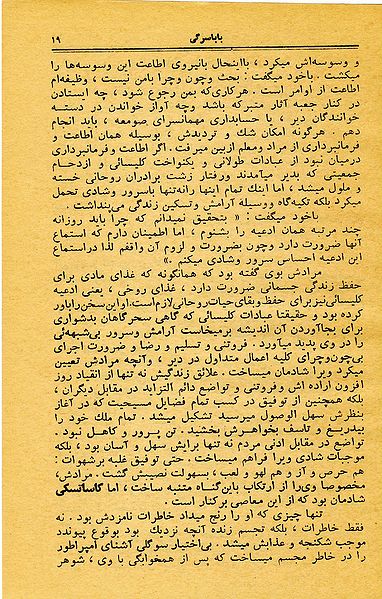 باباسرگی ۱۹
و وسوسه‌اش میکرد ، بااینحال بانیروی اطاعت این وسوسه‌ها را
میکشت . باخود میگفت : بحث وچون وچرا بامن نیست ، وظیفه‌ام
اطاعت از اوامر است . هرکاری‌که بمن رجوع شود ، چه ایستادن
در کنار جعبه آثار متبرکه باشد وچه آواز خواندن در دسته
خوانندگان دیر ، یا حسابداری مهمانسرای صومعه ، باید انجام
دهم . هرگونه امکان شك و تردیدش ، بوسیله همان اطاعت و
فرمانبرداری از مراد ومعلم ازبین میرفت . اگر اطاعت و فرمانبرداری
درمیان نبود از عبادات طولانی و یکنواخت کلیسائی و ازدحام
جمعیتی که بدیر میآمدند ورفتار زشت برادران روحانی خسته
و ملول میشد ، اما اینك تمام اینها رانه‌تنها باسرور وشادی تحمل
میکرد بلکه تکیه‌گاه ووسیله آرامش وتسکین زندگی می‌پنداشت .
باخود میگفت : « بتحقیق نمیدانم که چرا باید روزانه
چند مرتبه همان ادعیه را بشنوم ، اما اطمینان دارم که استماع
آنها ضرورت دارد وچون بضرورت و لزوم آن واقفم لذا دراستماع
این ادعیه احساس سرور وشادی میکنم .»
مرادش بوی گفته بود که همانگونه که غذای مادی برای
حفظ زندگی جسمانی ضرورت دارد ، غذای روحی ، یعنی ادعیه
کلیسائی نیز برای حفظ وبقای‌حیات روحانی لازم‌است. او این سخن راباور
کرده بود و حقیقتا عبادات کلیسائی که گاهی سحرگاهان بدشواری
برای بجاآوردن آن اندیشه برمیخاست آرامش وسرور بی‌شبهه‌ئی
را در وی پدید میآورد . فروتنی و تسلیم و رضا و ضرورت اجرای
بی‌چون‌وچرای کلیه اعمال متداول در دیر ، وآنچه مرادش تعیین
میکرد ویرا شادمان میساخت . علائق زندگیش نه تنها از انقیاد روز
افزون اراده اش وفروتنی و تواضع دائم التزاید در مقابل دیگران ،
بلکه همچنین از توفیق در کسب تمام فضایل مسیحیت که در آغاز
بنظرش سهل الوصول میرسید تشکیل میشد . تمام ملك خود را
بیدریغ و تاسف بخواهرش بخشید . تن پرور و کاهل نبود .
تواضع در مقابل ادنی مردم نه تنها برایش سهل و آسان بود ، بلکه
موجبات شادی ویرا فراهم میساخت . حتی توفیق غلبه برشهوات :
هم حرص و آز و هم لهو و لعب ، بسهولت نصیبش گشت . مرادش،
مخصوصا وی‌را از ارتکاب باین‌گناه متنبه ساخت ، اما کاساتسکی
شادمان بود که از این معاصی برکنار است .
تنها چیزی که او را رنج میداد خاطرات نامزدش بود . نه
فقط خاطرات ، بلکه تجسم زنده آنچه نزدیك بود بوقوع پیوندد
موجب شکنجه و عذابش میشد . بی‌اختیار سوگلی آشنای امپراطور
را در خاطر مجسم میساخت که پس از همخوابگی با وی ، شوهر